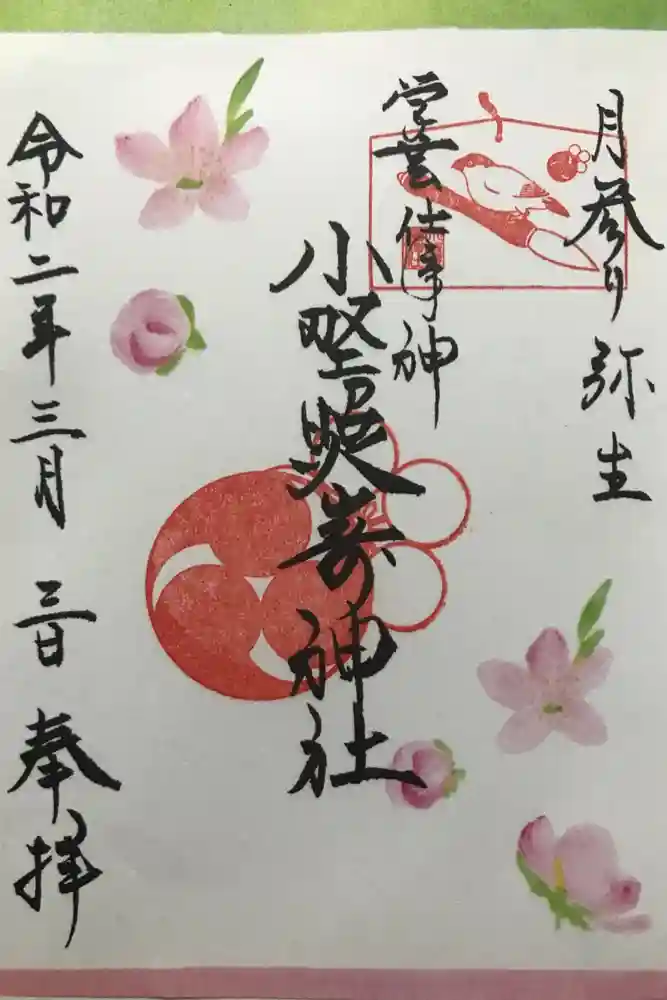 月参り 弥生
学芸 仕事神
小野照崎神社
令和二年三月 三日 奉拝